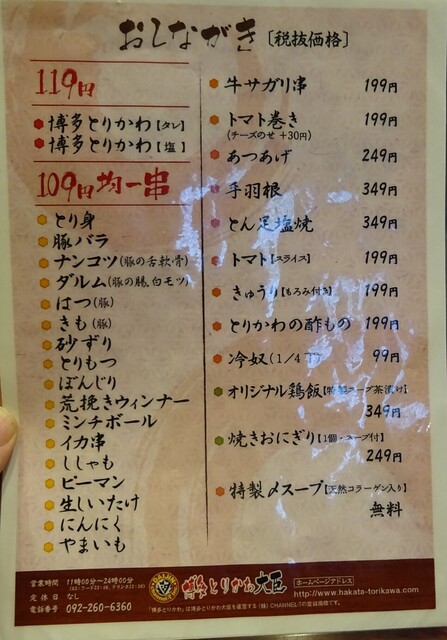 おしながき〔税抜価格〕
119円
博多とりかわ【タレ】
博多とりかわ【塩】
109円均一串
とり身
豚バラ
ナンコツ(豚の舌軟骨)
ダルム(豚の腸、白モツ)
はつ(豚)
きも(豚)
砂ずり
とりもつ
ぼんじり
荒挽きウィンナー
ミンチボール
イカ串
ししゃも
ピーマン
生しいたけ
にんにく
やまいも
牛サガリ串 199円
トマト巻き 199円
(チーズのせ +30円)
あつあげ 249円
手羽根 349円
とん足塩焼 349円
トマト【スライス】 199円
きゅうり【もろみ付き】 199円
とりかわの酢もの 199円
冷奴(1/4丁) 99円
オリジナル鶏飯【特製スープ茶漬け】
349円
焼きおにぎり【1個・スープ付】
249円
特製〆スープ【天然コラーゲン入り】
無料
営業時間 11時00分〜24時00分
定休日 なし
電話番号 092-260-6360
博多とりかわ大臣
ホームページアドレス
http://www.hakata-torikawa.com
「博多とりかわ」は博多とりかわ大臣を運営する(株)CHANNEL-1の登録商標です。